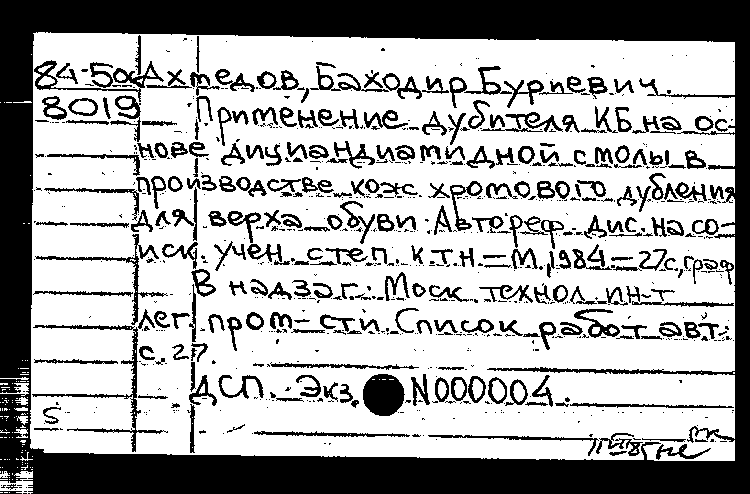 84-5а Ахмедов, Баходир Буриевич.
8019 Применение дубителя КБ на ос-
нове дициандиамидной смолы в
производстве кож хромового дубления
для верха обуви: Автореф. дис. на со-
иск. учен. степ. к.т.н. — М., 1984. — 27с, граф
В надзаг: Моск технол. ин-т
лег. пром-сти. Список работ авт.
с. 27.
ДСП. Экз. N000004.
S